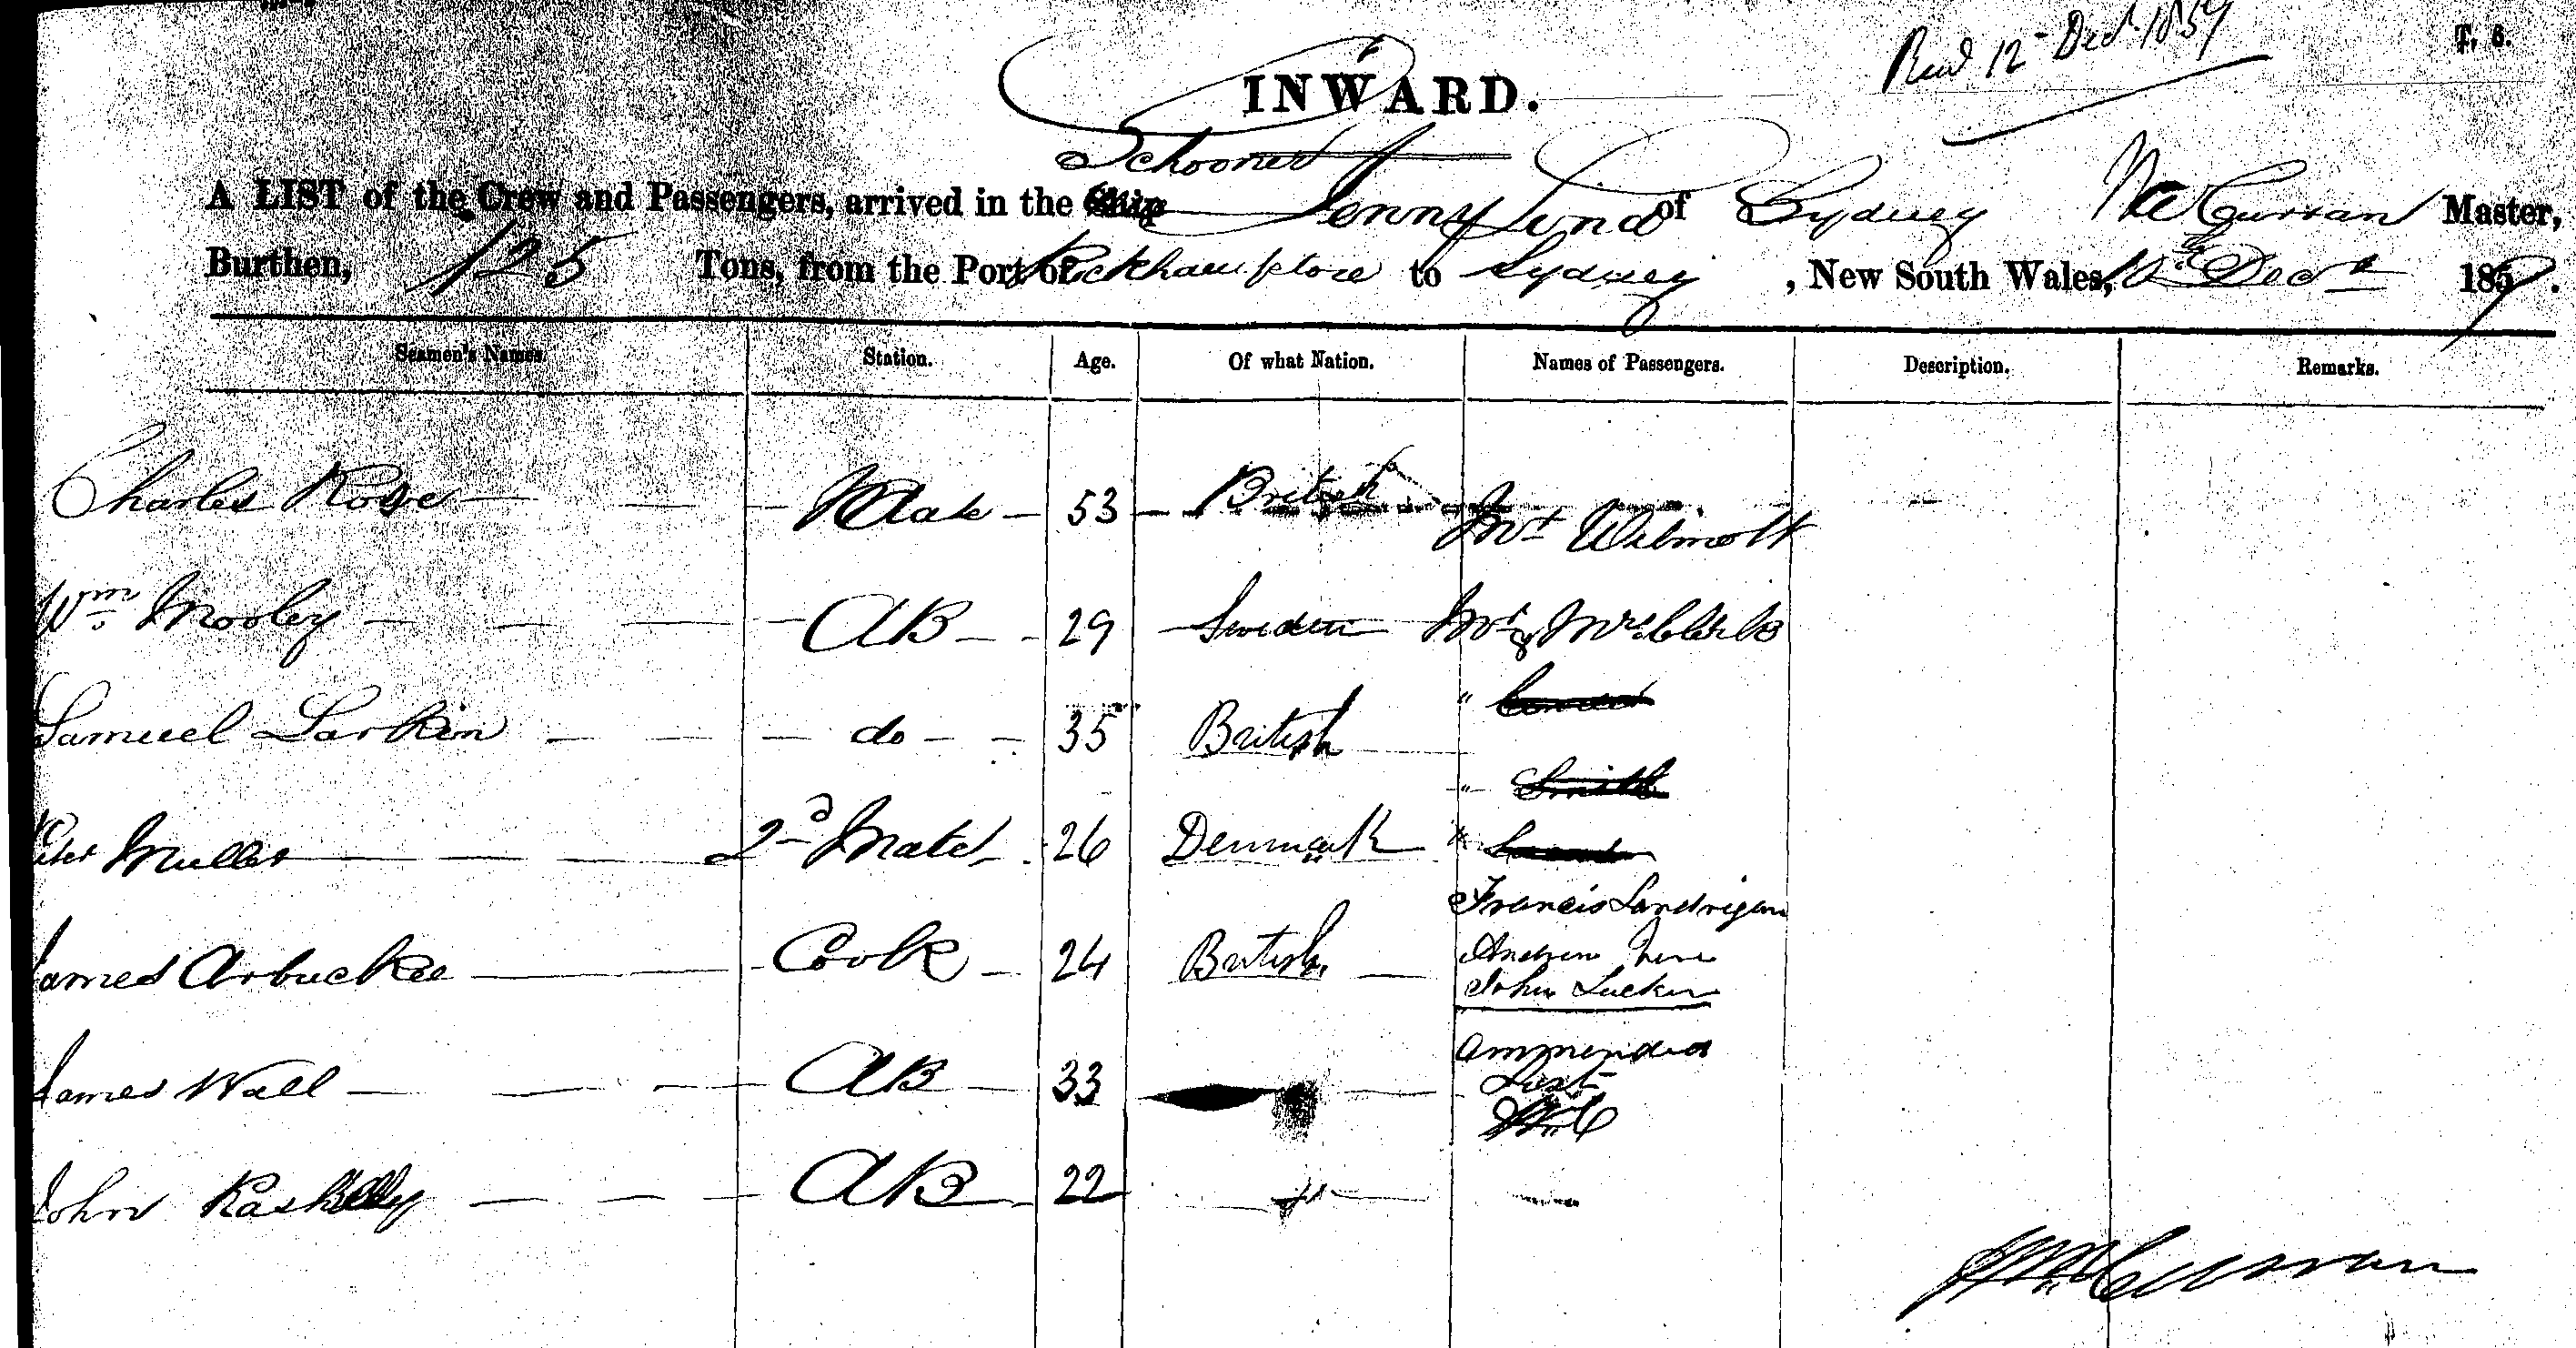 T. 6.
Recd 12 Decr 1859
INWARD.
Schooner
A LIST of the Crew and Passengers, arrived in the Ship Jenny Lind of Sydney McCurran Master,
Burthen, 125 Tons, from the Port of Rockhampton to Sydney, New South Wales, Decr 1859.
Seamen's Names. Station. Age. Of what Nation. Names of Passengers. Description. Remarks.
Charles Rose Mate 53 British Mr Wilmott
Wm Mooley AB 29 Sweden Mr & Mrs
Samuel Larkin do 35 British "
" Smith
Peter Muller 2d Mate 26 Denmark "
Francis Landrigan
James Arbuckle Cook 24 British Andrew
John Tucker
Ammended
James Wall AB 33 List
John AB 22 "
McCurran